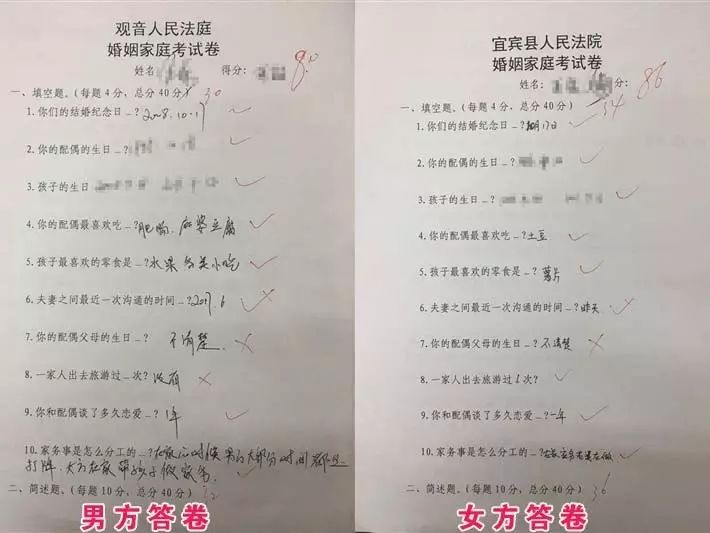 观音人民法庭
婚姻家庭考试卷
姓名 得分： 80
一、填空题。（每题 4 分，总分 40 分） 30
1.你们的结婚纪念日_?2008.10.17
2.你的配偶的生日_?
3.孩子的生日
4.你的配偶最喜欢吃_?肥肠、麻婆豆腐
5.孩子最喜欢的零食是_?水果 各类小吃
6.夫妻之间最近一次沟通的时间_?2017.6
7.你的配偶父母的生日_? 不清楚
8.一家人出去旅游过_次?没有
9.你和配偶谈了多久恋爱_? 1年
10.家务事是怎么分工的_?在家的时候 男的大部分时间都是
打牌，女方在家带孩子做家务
二、简述题。（每题 10 分，总分 40 分） 32
男方答卷
宜宾县人民法院
婚姻家庭考试卷
姓名： 分： 86
一、填空题。（每题 4 分，总分 40 分） 34
1.你们的结婚纪念日_? 17日
2.你的配偶的生日_?
3.孩子的生日
4.你的配偶最喜欢吃_?土豆
5.孩子最喜欢的零食是_? 薯片
6.夫妻之间最近一次沟通的时间_?昨天
7.你的配偶父母的生日_?不清楚
8.一家人出去旅游过 1 次?
9.你和配偶谈了多久恋爱_?一年
10.家务事是怎么分工的_?
二、简述题。（每题 10 分，总分 40 分） 36
女方答卷